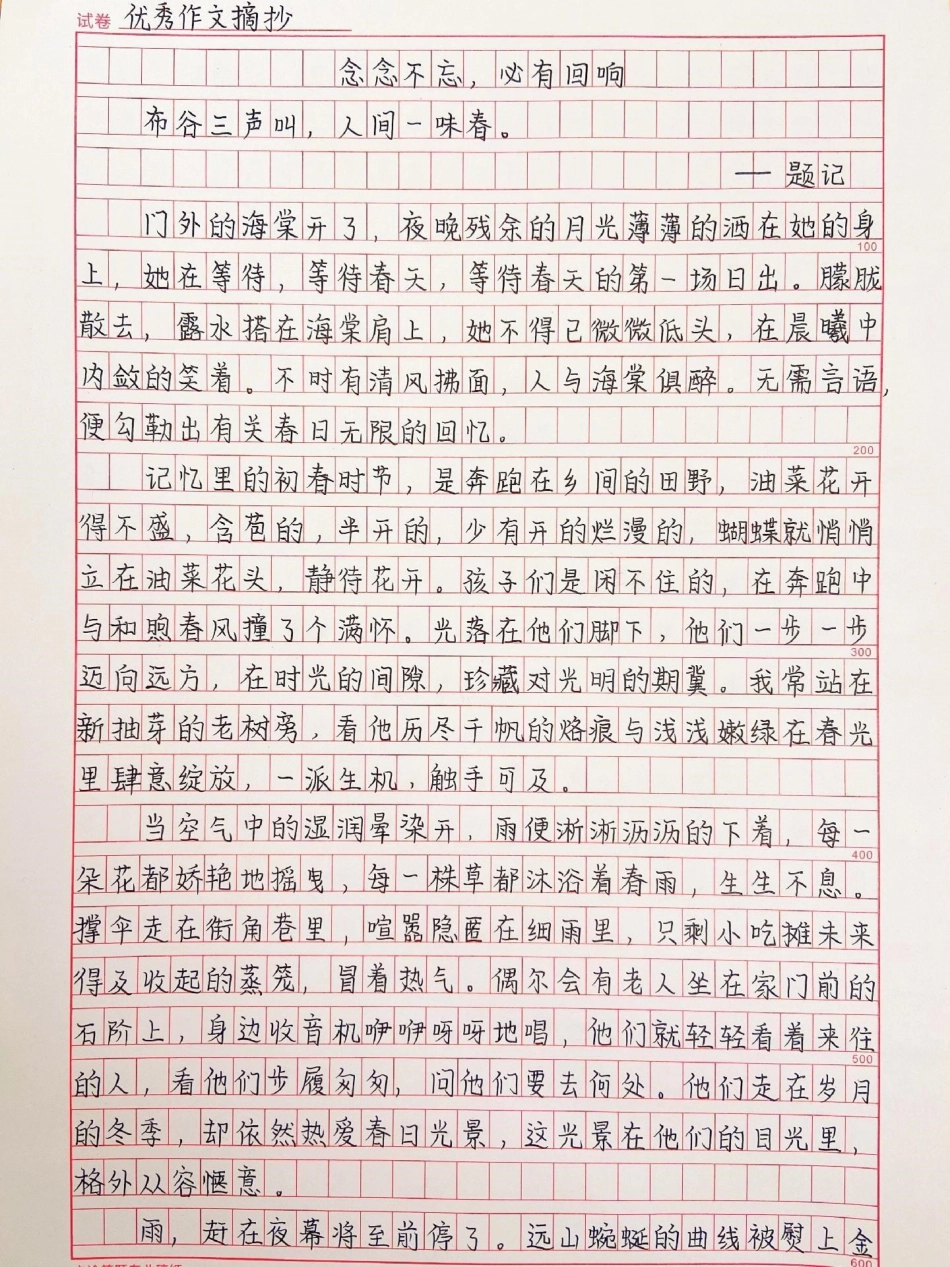 试卷 优秀作文摘抄
念念不忘，必有回响
布谷三声叫，人间一味春。
——题记
门外的海棠开了，夜晚残余的月光薄薄的洒在她的身
100
上，她在等待，等待春天，等待春天的第一场日出。朦胧
散去，露水搭在海棠肩上，她不得已微微低头，在晨曦中
内敛的笑着。不时有清风拂面，人与海棠俱醉。无需言语，
便勾勒出有关春日无限的回忆。
200
记忆里的初春时节，是奔跑在乡间的田野，油菜花开
得不盛，含苞的，半开的，少有开的烂漫的，蝴蝶就悄悄
立在油菜花头，静待花开。孩子们是闲不住的，在奔跑中
与和煦春风撞了个满怀。光落在他们脚下，他们一步一步
300
迈向远方，在时光的间隙，珍藏对光明的期冀。我常站在
新抽芽的老树旁，看他历尽千帆的烙痕与浅浅嫩绿在春光
里肆意绽放，一派生机，触手可及。
当空气中的湿润晕染开，雨便淅淅沥沥的下着，每一
400
朵花都娇艳地摇曳，每一株草都沐浴着春雨，生生不息。
撑伞走在街角巷里，喧嚣隐匿在细雨里，只剩小吃摊未来
得及收起的蒸笼，冒着热气。偶尔会有老人坐在家门前的
石阶上，身边收音机咿咿呀呀地唱，他们就轻轻看着来往
500
的人，看他们步履匆匆，问他们要去何处。他们走在岁月
的冬季，却依然热爱春日光景，这光景在他们的目光里，
格外从容惬意。
雨，赶在夜幕将至前停了。远山蜿蜒的曲线被熨上金
600